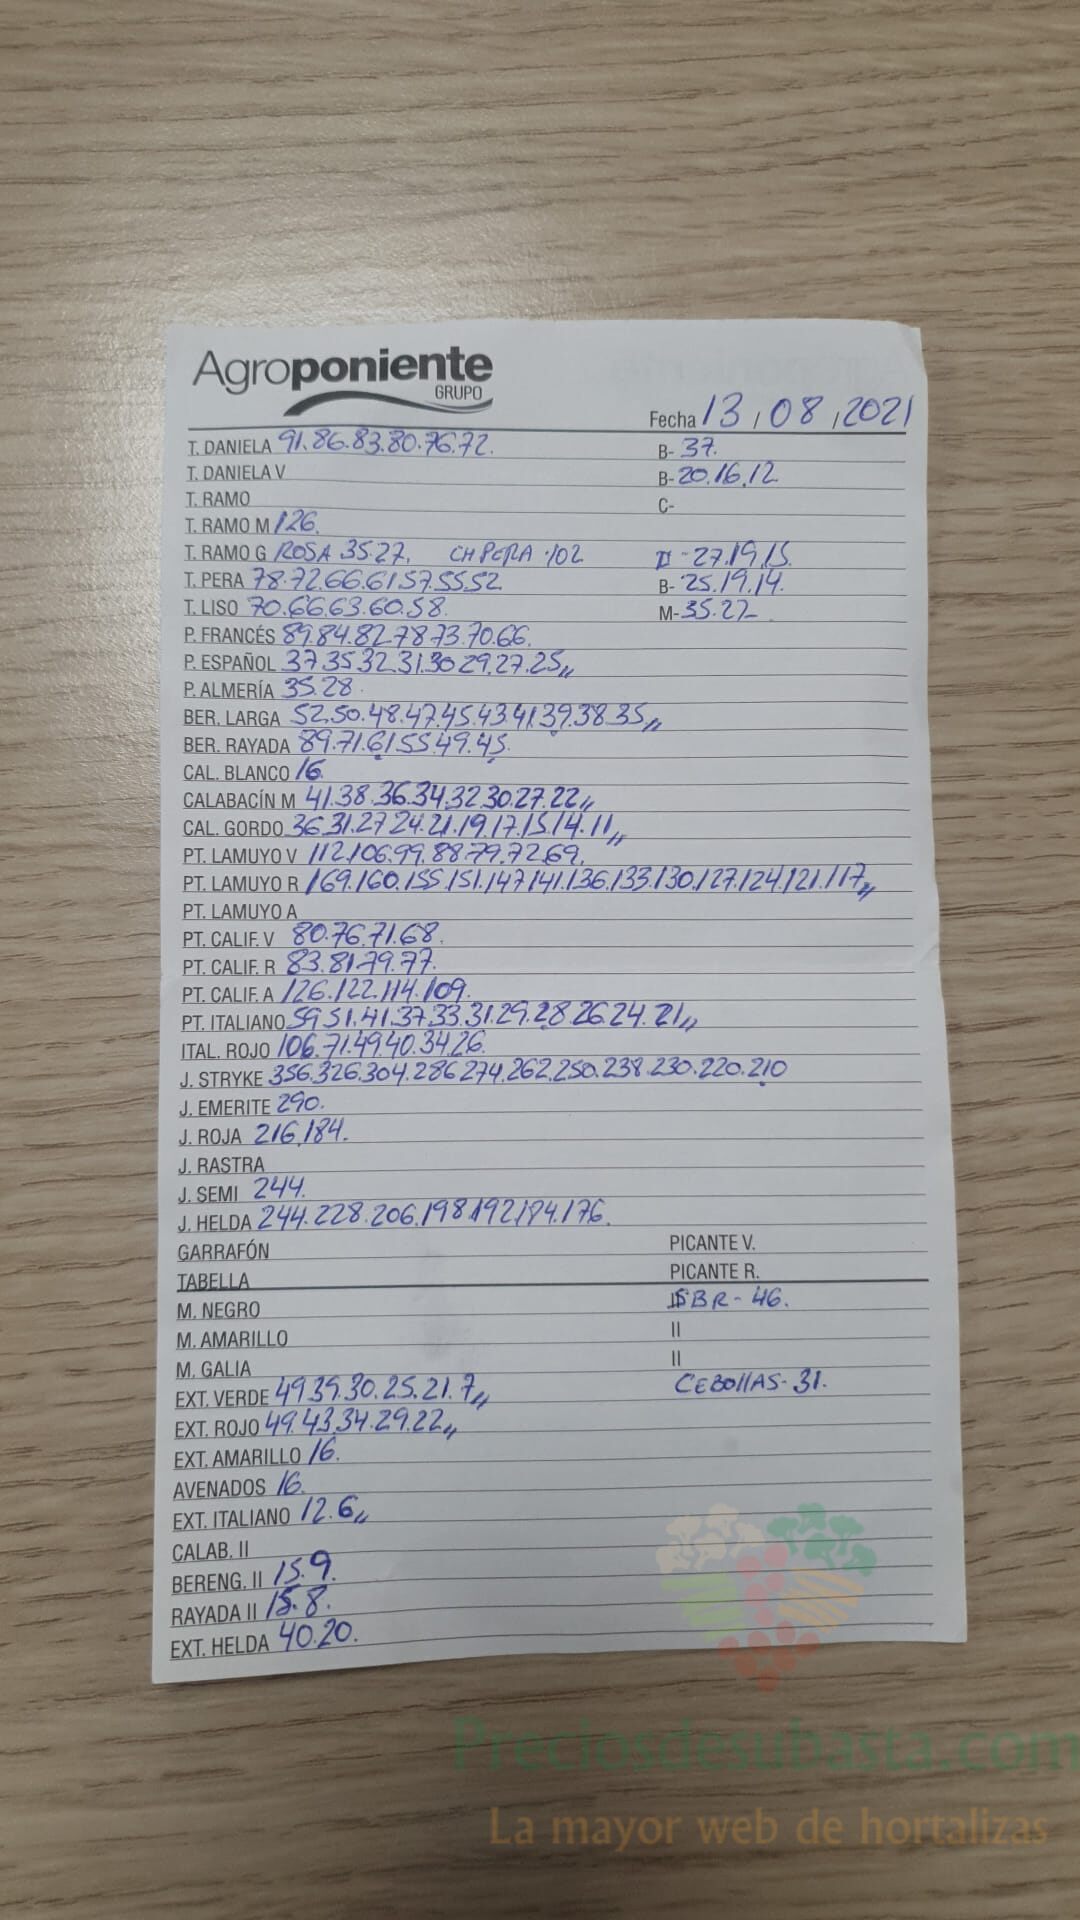 Agroponiente
GRUPO
Fecha 13/08/2021
T. DANIELA 91.86.83.80.76.72. B- 37.
T. DANIELA V B- 20.16.12
T. RAMO C-
T. RAMO M 126.
T. RAMO G ROSA 35.27. CH PERA .102 II -27.19.15.
T. PERA 78.72.66.61.57.55.52 B- 25.19.14.
T. LISO 70.66.63.60.58. M- 35.27
P. FRANCÉS 89.84.82.78.73.70.66.
P. ESPAÑOL 37.35.32.31.30.29.27.25,,
P. ALMERÍA 35.28.
BER. LARGA 52.50.48.47.45.43.41.39.38.35,,
BER. RAYADA 89.71.61.55.49.45.
CAL. BLANCO 16.
CALABACÍN M 41.38.36.34.32.30.27.22,,
CAL. GORDO 36.31.27.24.21.19.17.15.14.11,,
PT. LAMUYO V 112.106.99.88.79.72.69.
PT. LAMUYO R 169.160.155.151.147.141.136.133.130.127.124.121.117,,
PT. LAMUYO A
PT. CALIF. V 80.76.71.68.
PT. CALIF. R 83.81.79.77.
PT. CALIF. A 126.122.114.109.
PT. ITALIANO 59.51.41.37.33.31.29.28.26.24.21,,
ITAL. ROJO 106.71.49.40.34.26.
J. STRYKE 356.326.304.286.274.262.250.238.230.220.210
J. EMERITE 290.
J. ROJA 216.184.
J. RASTRA
J. SEMI 244.
J. HELDA 244.228.206.198.192.184.176.
GARRAFÓN PICANTE V.
TABELLA PICANTE R.
M. NEGRO SBR- 46.
M. AMARILLO II
M. GALIA II
EXT. VERDE 49.39.30.25.21.7,, CEBOllAS- 31.
EXT. ROJO 49.43.34.29.22,,
EXT. AMARILLO 16.
AVENADOS 16.
EXT. ITALIANO 12.6,,
CALAB. II
BERENG. II 15.9.
RAYADA II 15.8.
EXT. HELDA 40.20.
Preciosdesubasta.com
La mayor web de hortalizas